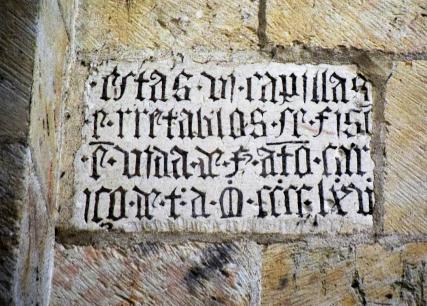 ·estas·vi·capillas
e·rretablos·se·fisi
ē·vida·de·f·atō·can
iço·de·t·a·m̊·cccc·lxv